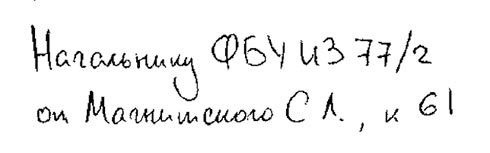 Начальнику ФБУ ИЗ 77/2
от Магнитского С Л., к 61